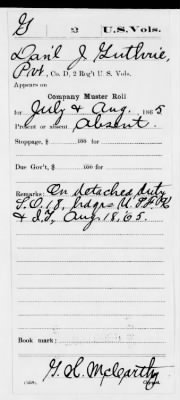 G 2 U.S. Vols.
Dan'l J Guthrie,
Pvt., Co. D, 2 Reg't U. S. Vols.
Appears on
Company Muster Roll
for July & Aug., 1865
Present or absent Absent.
Stoppage, $ 100 for
Due Gov't, $ 100 for
Remarks: On detached duty
S.O. 18, hdqrs U.
& I.T, Aug 18, 65.
Book mark:
G. H. McCarthy
(358) Copyist.